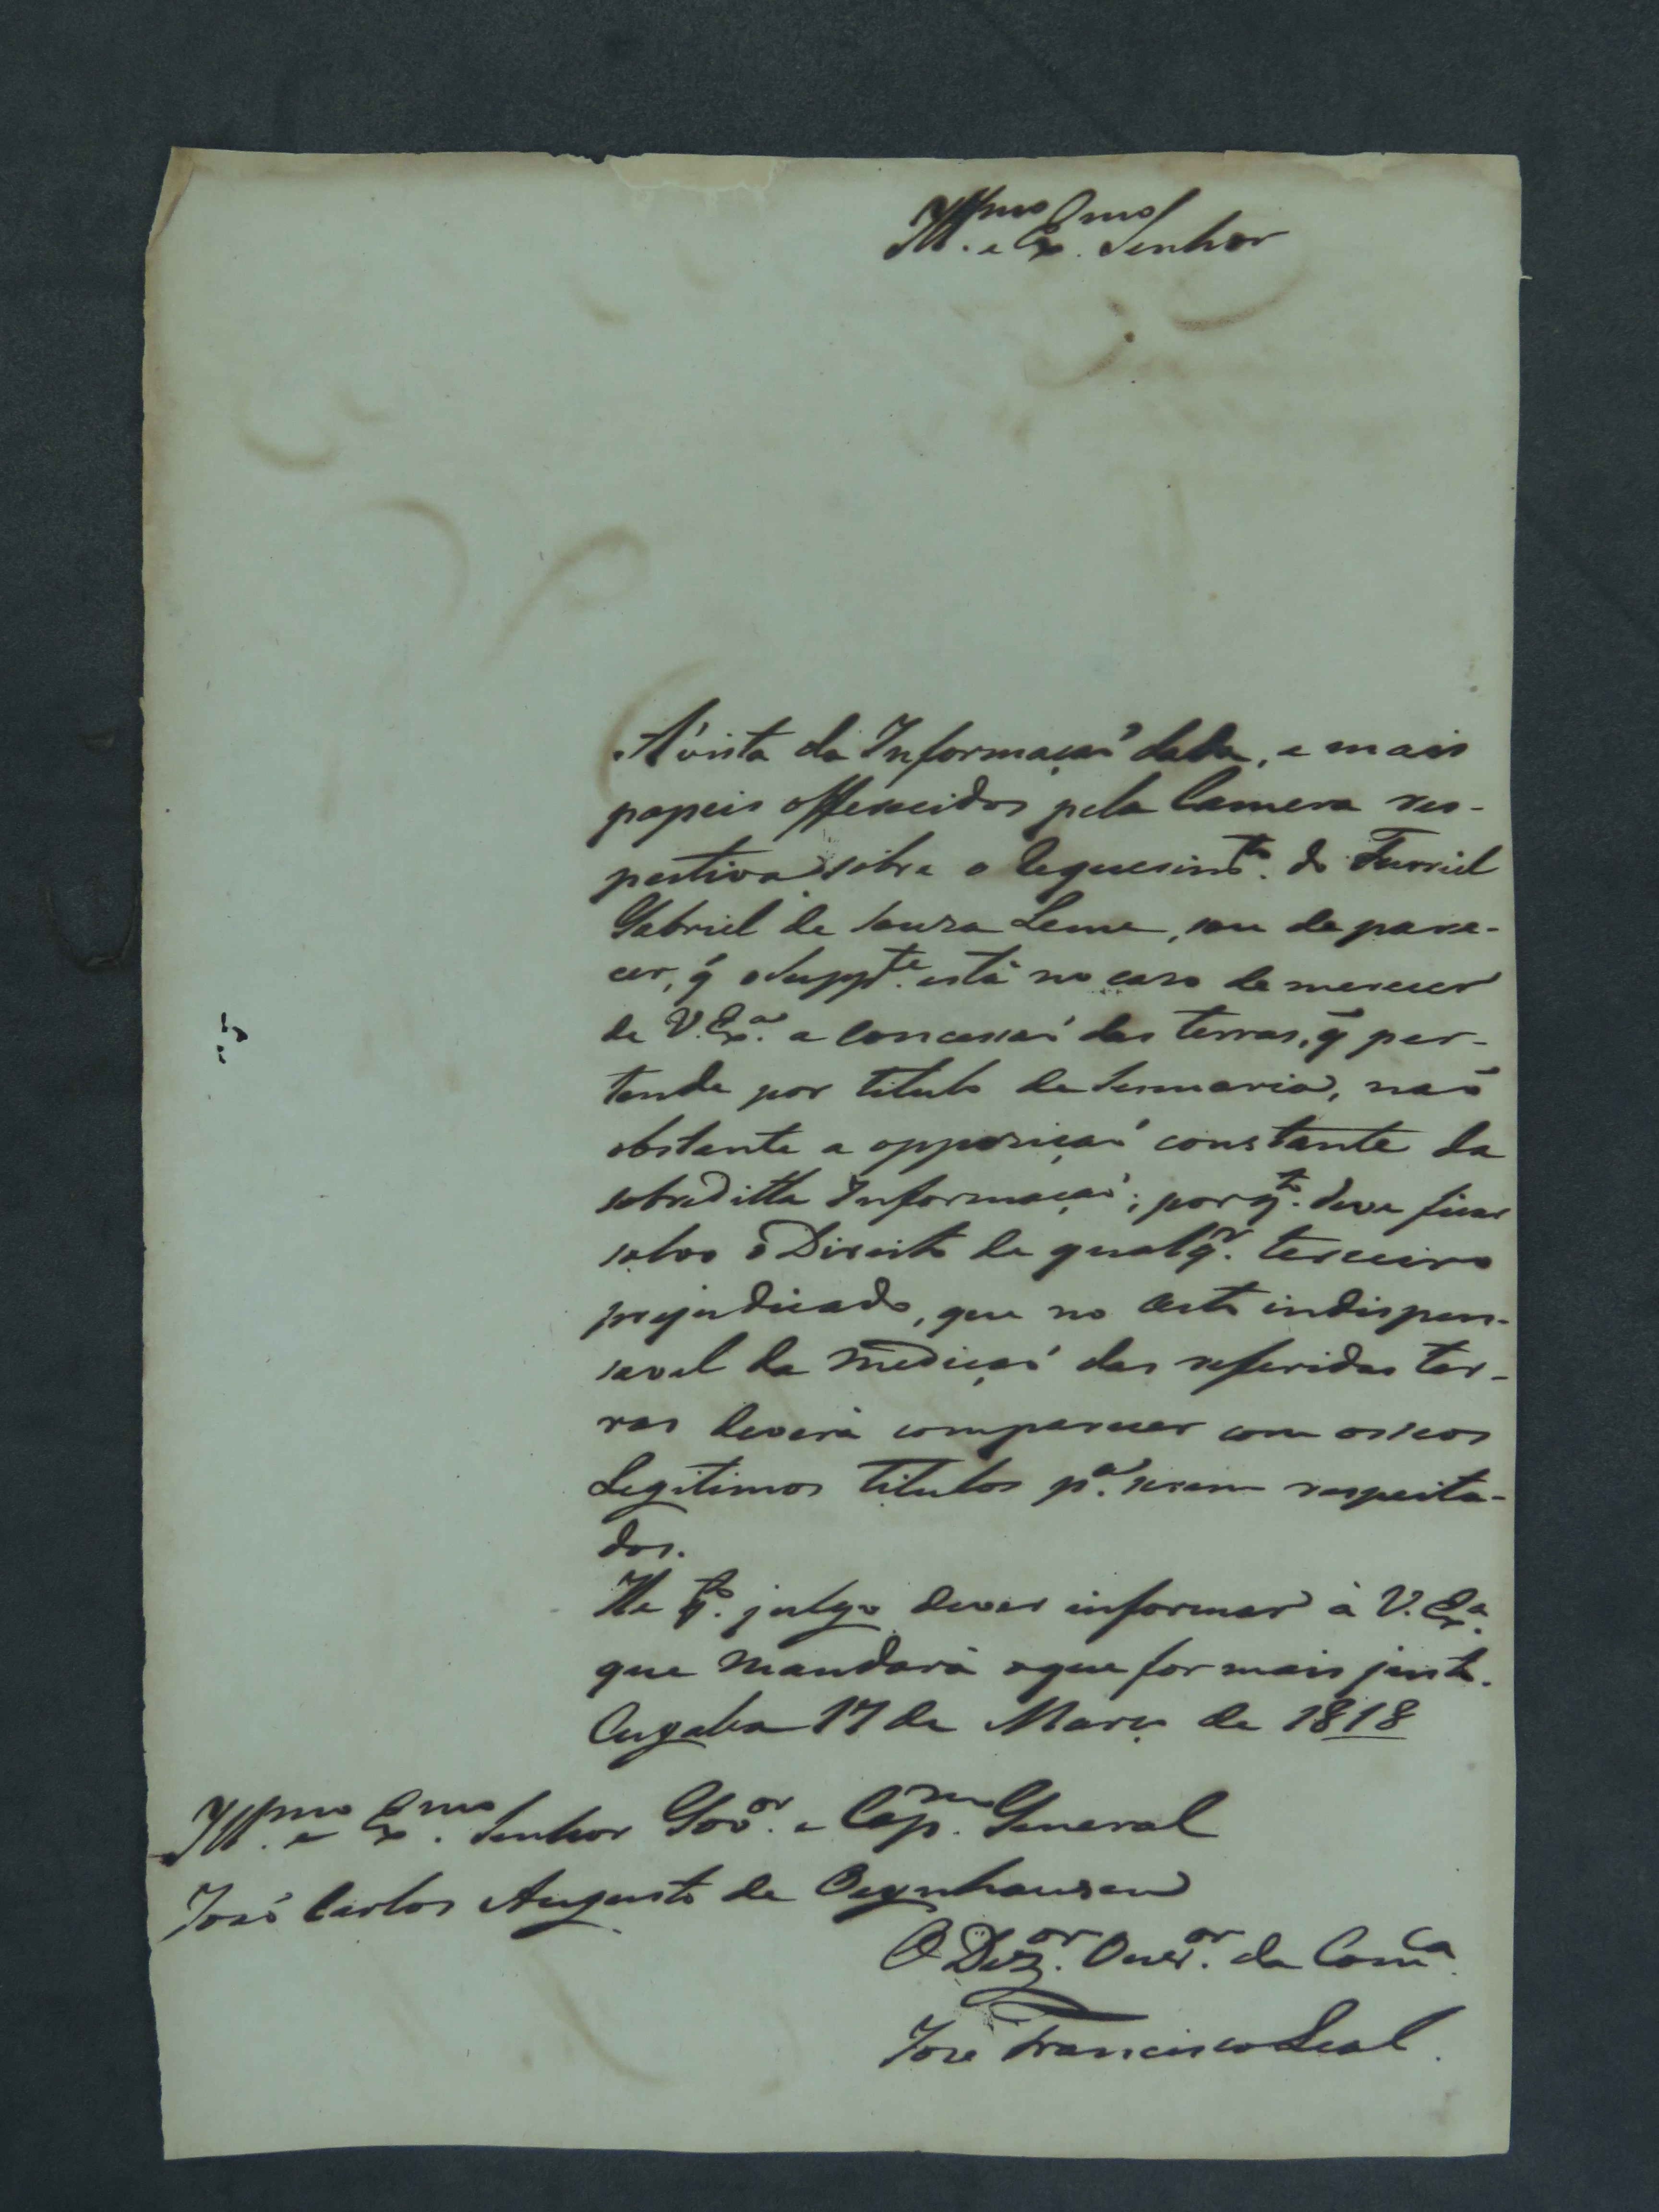 Ill.mo e Ex.mo Senhor
Á vista da Informaçaõ dada, e mais
papeis offerecidos pela Camera res-
pectiva sobre o Requerim.to do Furriel
Gabriel de Souza Leme, sou de pare-
cer, q̃ o Supp.te está no caso de merecer
de V. Ex.a a Concessaõ das terras, q̃ per-
tende por titulo de Sesmaria, naõ
obstante a opposiçaõ constante da
sobreditta Informaçaõ; porq.to deve ficar
salvo o Direito de qualq.r terceiro
prejudicado, que no Acto indispen-
savel da Mediçaõ das referidas ter-
ras deverá comparecer com os seos
Legitimos Titulos p.a serem respeita-
dos.
He q.to julgo dever informar á V. Ex.a
que Mandará o que for mais justo.
Cuyaba 17 de Março de 1818
Ill.mo e Ex.mo Senhor Gov.or e Cap.m General
José Carlos Augusto de Oeynhausen
O Dez.or Ouv.or da Com.ca
Joze Francisco Leal.